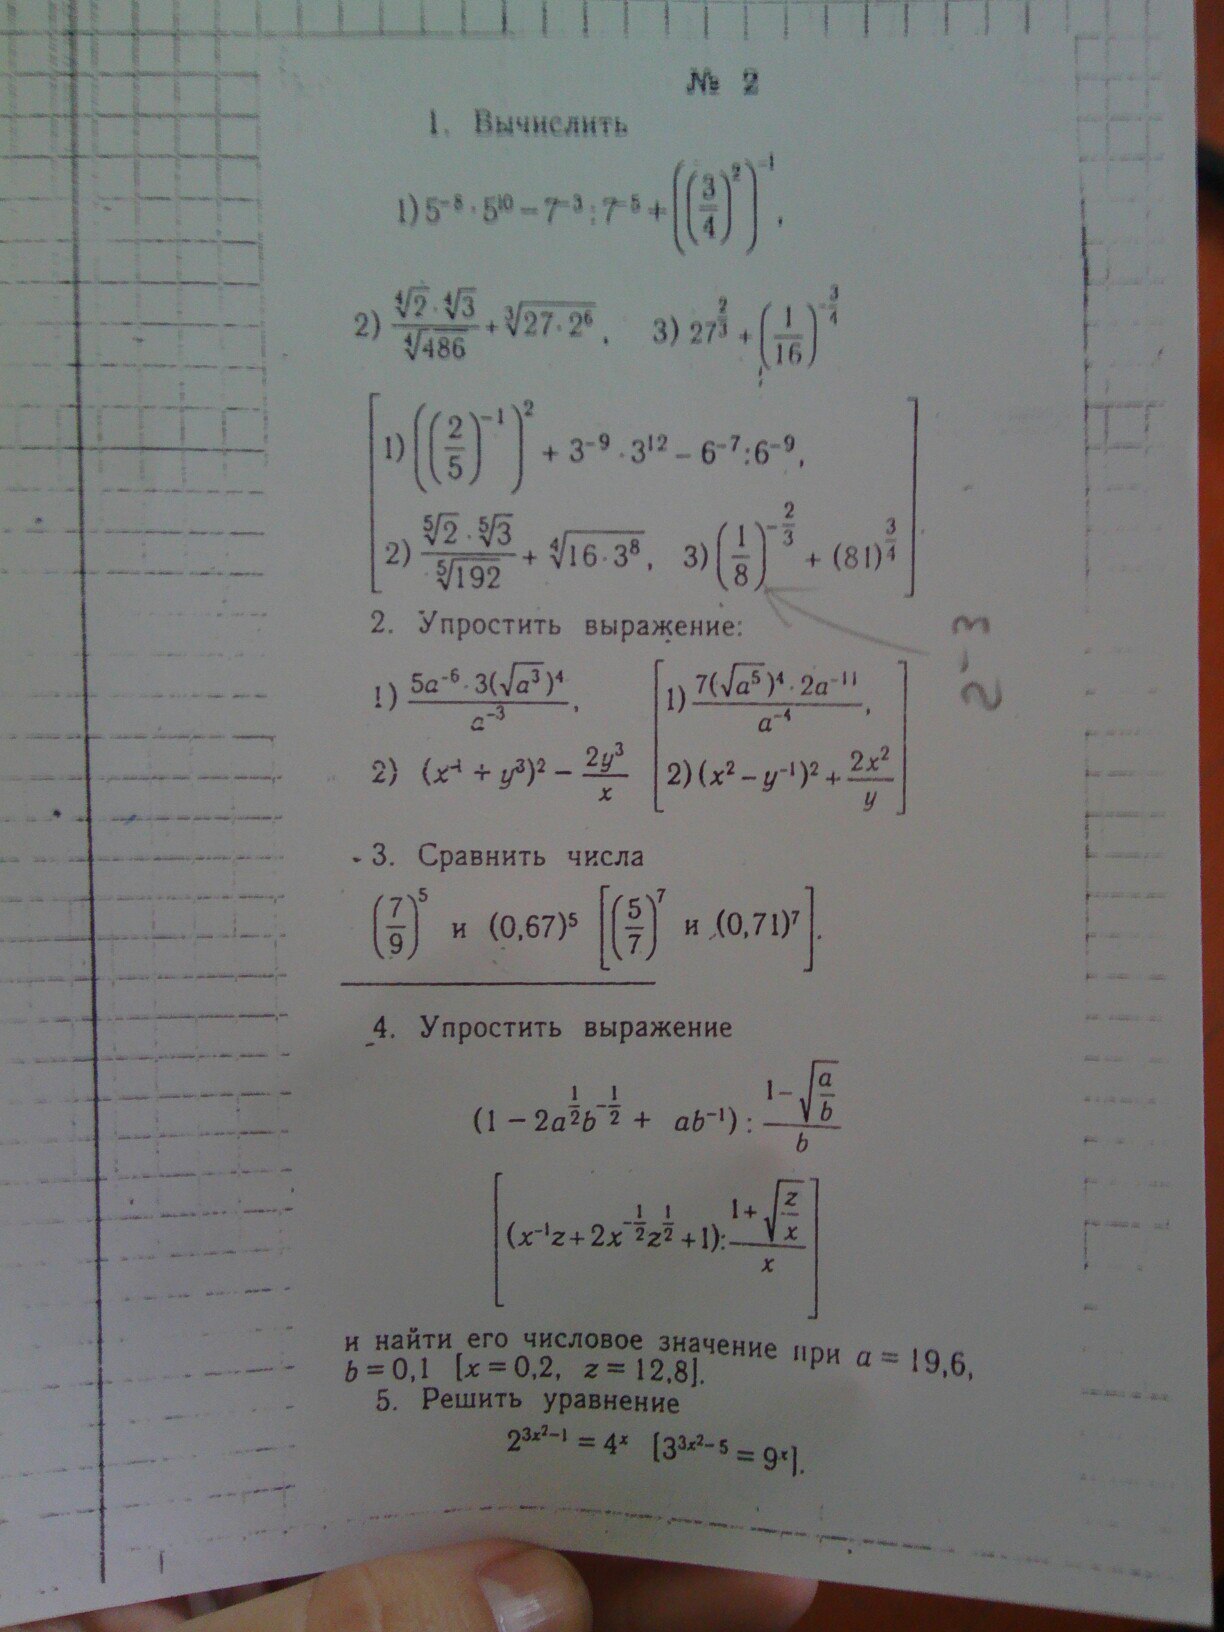 № 2
1. Вычислить
1) 5⁻⁸ · 5¹⁰ − 7⁻³ : 7⁻⁵ + ((3/4)²)⁻¹,
2) (⁴√2 · ⁴√3)/(⁴√486) + ³√(27 · 2⁶), 3) 27^(2/3) + (1/16)^(−3/4);
[1) ((2/5)⁻¹)² + 3⁻⁹ · 3¹² − 6⁻⁷ : 6⁻⁹,
2) (⁵√2 · ⁵√3)/(⁵√192) + ⁴√(16 · 3⁸), 3) (1/8)^(−2/3) + (81)^(3/4)]
2. Упростить выражение:
2⁻³
1) (5a⁻⁶ · 3(√a³)⁴)/a⁻³, [1) (7(√a⁵)⁴ · 2a⁻¹¹)/a⁻⁴,
2) (x⁻¹ + y³)² − 2y³/x 2) (x² − y⁻¹)² + 2x²/y]
3. Сравнить числа
(7/9)⁵ и (0,67)⁵ [(5/7)⁷ и (0,71)⁷].
4. Упростить выражение
(1 − 2a^(1/2)b^(−1/2) + ab⁻¹) : (1 − √(a/b))/b
[(x⁻¹z + 2x^(−1/2)z^(1/2) + 1) : (1 + √(z/x))/x]
и найти его числовое значение при a = 19,6,
b = 0,1 [x = 0,2, z = 12,8].
5. Решить уравнение
2^(3x²−1) = 4ˣ [3^(3x²−5) = 9ˣ].